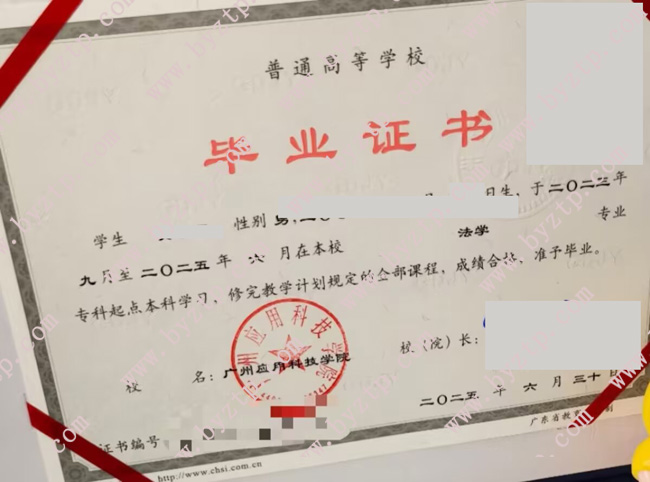 普通高等学校
毕业证书
学生 性别 男,二〇 月 日生, 于二〇二三年
九月至二〇二五年 六 月在本校 法学 专业
专科起点本科学习, 修完教学计划规定的全部课程, 成绩合格, 准予毕业。
广州应用科技学院
校 名: 广州应用科技学院 校(院)长:
二〇二五 年 六 月 三十 日
证书编号
广东省教育
http://www.chsi.com.cn
www.byztp.com